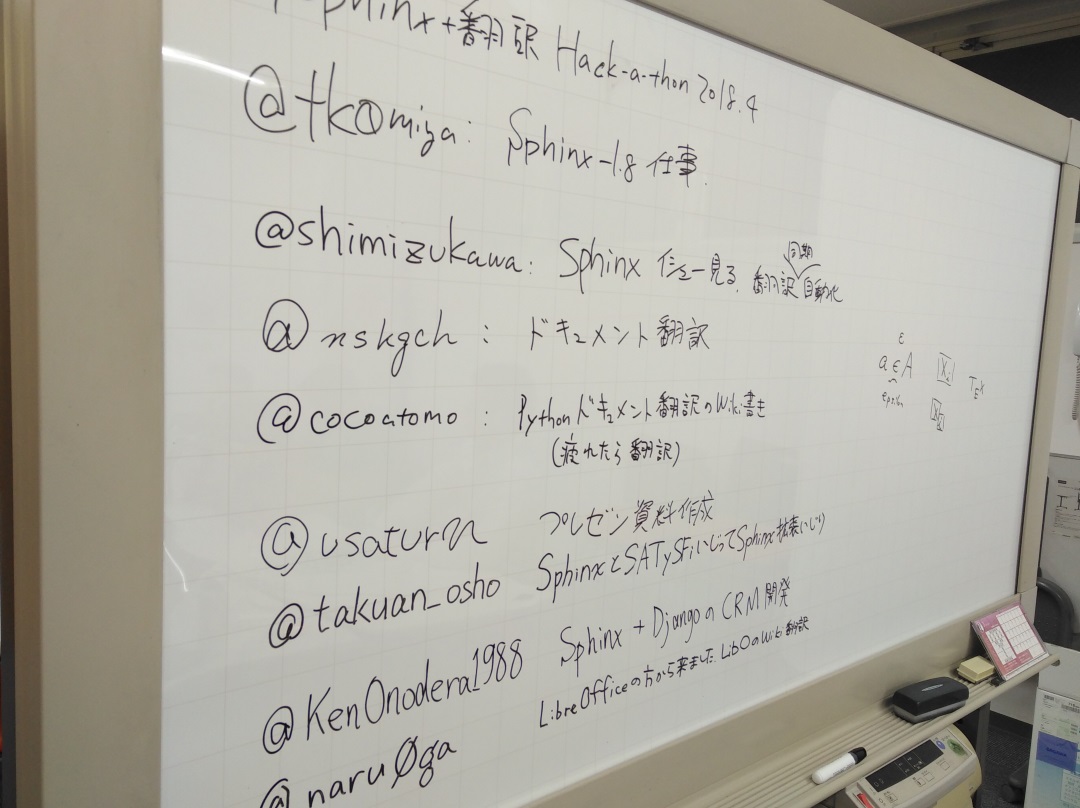 Sphinx+翻訳 Hack-a-thon 2018.4
@tk0miya: Sphinx-1.8 仕事.
@shimizukawa: Sphinx イシュー見る, 翻訳 同期 自動化
@nskgch: ドキュメント翻訳
@cocoatomo: Pythonドキュメント翻訳のWiki書き
(疲れたら翻訳)
@usaturn プレゼン資料作成
@takuan_osho SphinxとSATySFiいじってSphinx拡張いじり
@KenOnodera1988 Sphinx + DjangoのCRM開発
@naru0ga LibreOfficeの方から来ました. LibOのWiki翻訳
ε
a ∈ A
epsilon
TEX